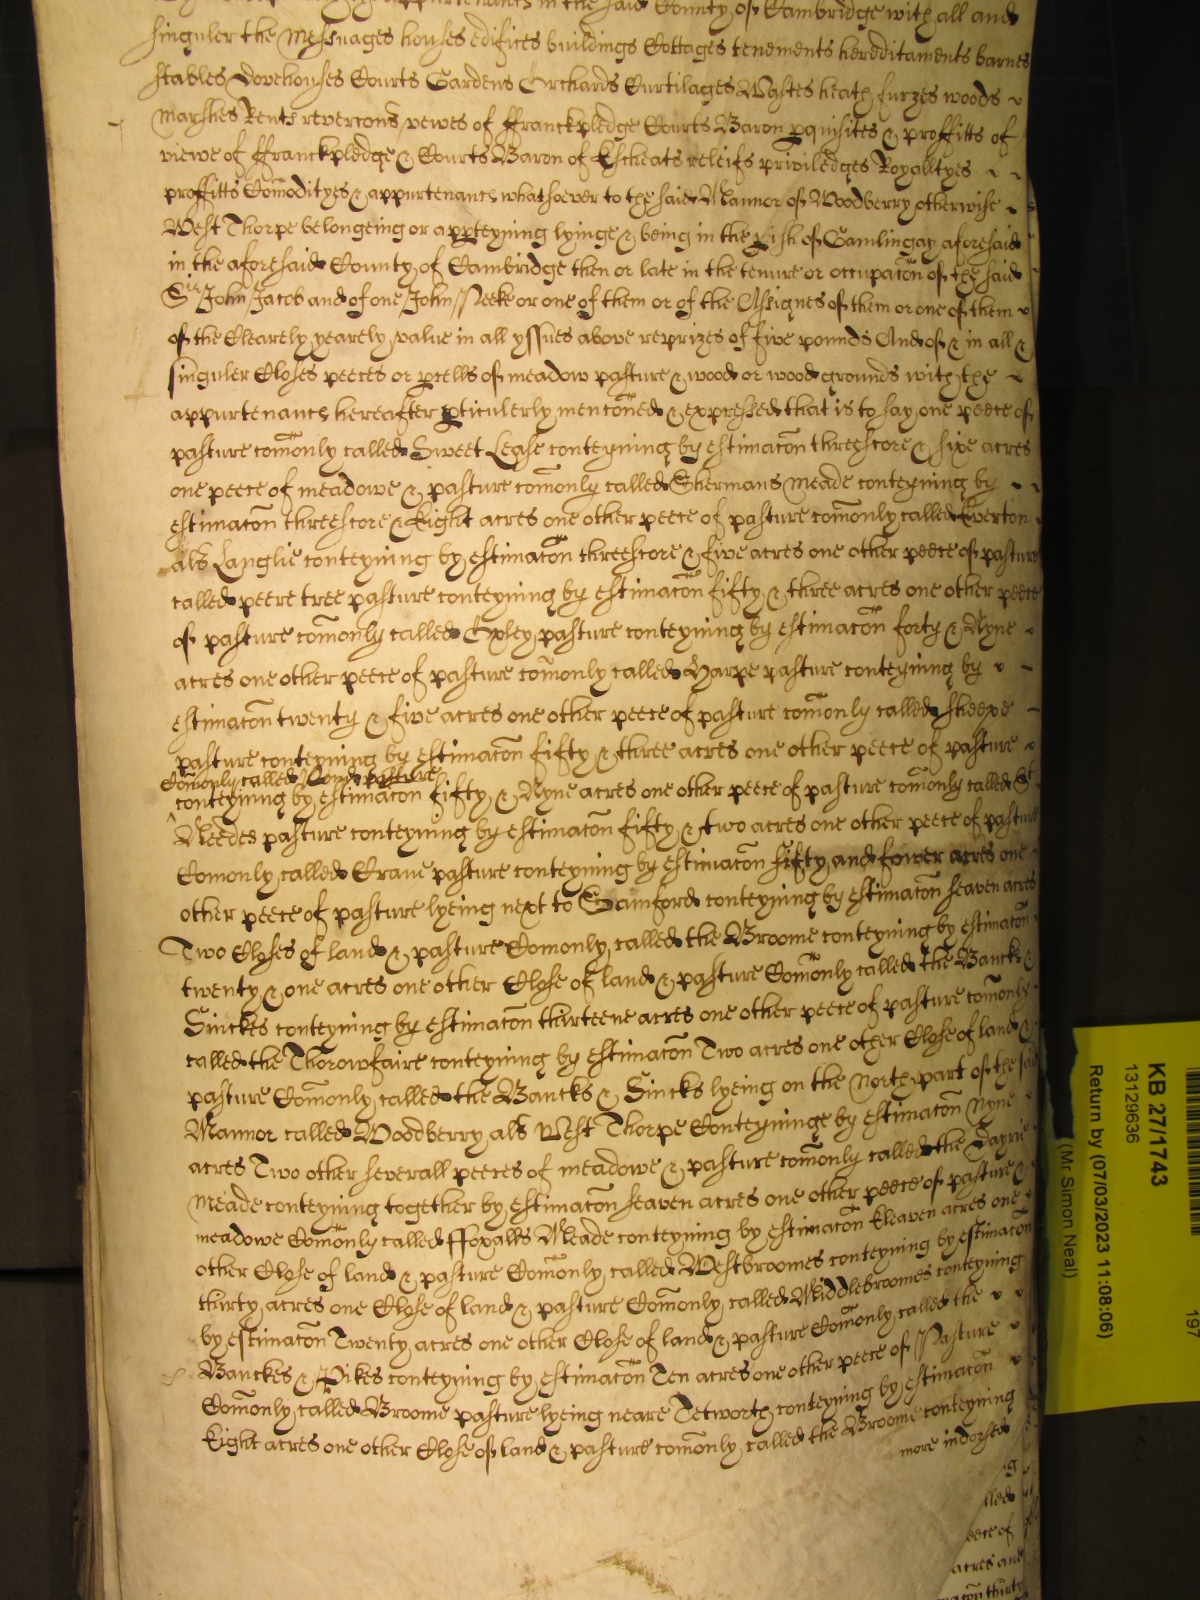 appurtenances in the said County of Cambridge with all and
singuler the Messuages houses edifices buildings Cottages tenements hereditaments barnes
stables Dovehouses Courts Gardens Orchards Curtilages Wastes heath furzes woods
marshes Rents revercons vewes of ffranckpledge Courts Baron pquisites & proffitts of
viewe of ffranckpledge & Courts Baron of Escheats releifs priviledges Royalltyes
proffitts Comodityes & appurtenancs whatsoever to the said Mannor of Woodberry otherwise
West Thorpe belongeing or appteyning lyinge & being in the pish of Gamlingay aforesaid
in the aforesaid County of Cambridge then or late in the tenure or occupacon of the said
Sir John Jacob and of one John Neeke or one of them or of the Assignes of them or one of them
of the Clearely yearely value in all yssues above reprizes of five pounds And of & in all &
singuler Closes peeces or pcells of meadow pasture & wood or wood grounds with the
appurtenancs hereafter pticulerly menconed & expressed that is to say one peece of
pasture comonly called Sweet Lease conteyning by estimacon threescore & sixe acres
one peece of meadowe & pasture comonly called Shermans meade conteyning by
estimacon threescore & Eight acres one other peece of pasture comonly called Everton
als Langlie conteyning by estimacon threescore & five acres one other peece of pasture
called peere tree pasture conteyning by estimacon fifty & three acres one other peece
of pasture comonly called Oxley pasture conteyning by estimacon forty & Nyne
acres one other peece of pasture comonly called Harpe pasture conteyning by
estimacon twenty & five acres one other peece of pasture comonly called sheepe
pasture conteyning by estimacon fifty & three acres one other peece of pasture
Comonly called Pond pasture
conteyning by estimacon fifty & Nyne acres one other peece of pasture comonly called St
Needes pasture conteyning by estimacon fifty & two acres one other peece of pasture
Comonly called Grave pasture conteyning by estimacon fifty and fower acres one
other peece of pasture lyeing next to Samford conteyning by estimacon seaven acres
Two Closes of land & pasture Comonly called the Broome conteyning by estimacon
twenty & one acres one other Close of land & pasture Comonly called the Bancks &
Sinckes conteyning by estimacon thirteene acres one other peece of pasture comonly
called the Thorowfaire conteyning by estimacon Two acres one other Close of land &
pasture Comonly called the Bancks & Sincks lyeing on the North part of the said
Mannor called Woodberry als West Thorpe Conteyninge by estimacon Nyne
acres Two other severall peeces of meadowe & pasture comonly called the Dayrie
meade conteyning together by estimacon seaven acres one other peece of pasture &
meadowe Comonly called ffoxalls Meade conteyning by estimacon Eleaven acres one
other Close of land & pasture Comonly called Westbroomes conteyning by estimacon
thirty acres one Close of land & pasture Comonly called Middlebroomes conteyning
by estimacon Twenty acres one other Close of land & pasture Comonly called the
Banckes & Pikes conteyning by estimacon Ten acres one other peece of Pasture
Comonly called Broome pasture lyeing neare Tetworth conteyning by estimacon
Eight acres one other Close of land & pasture comonly called the Broome conteyning
more indorsed
lled
peece of
acres and
macon thirty
KB 27/1743
13129636
Return by (07/03/2023 11:08:06)
(Mr Simon Neal)
197